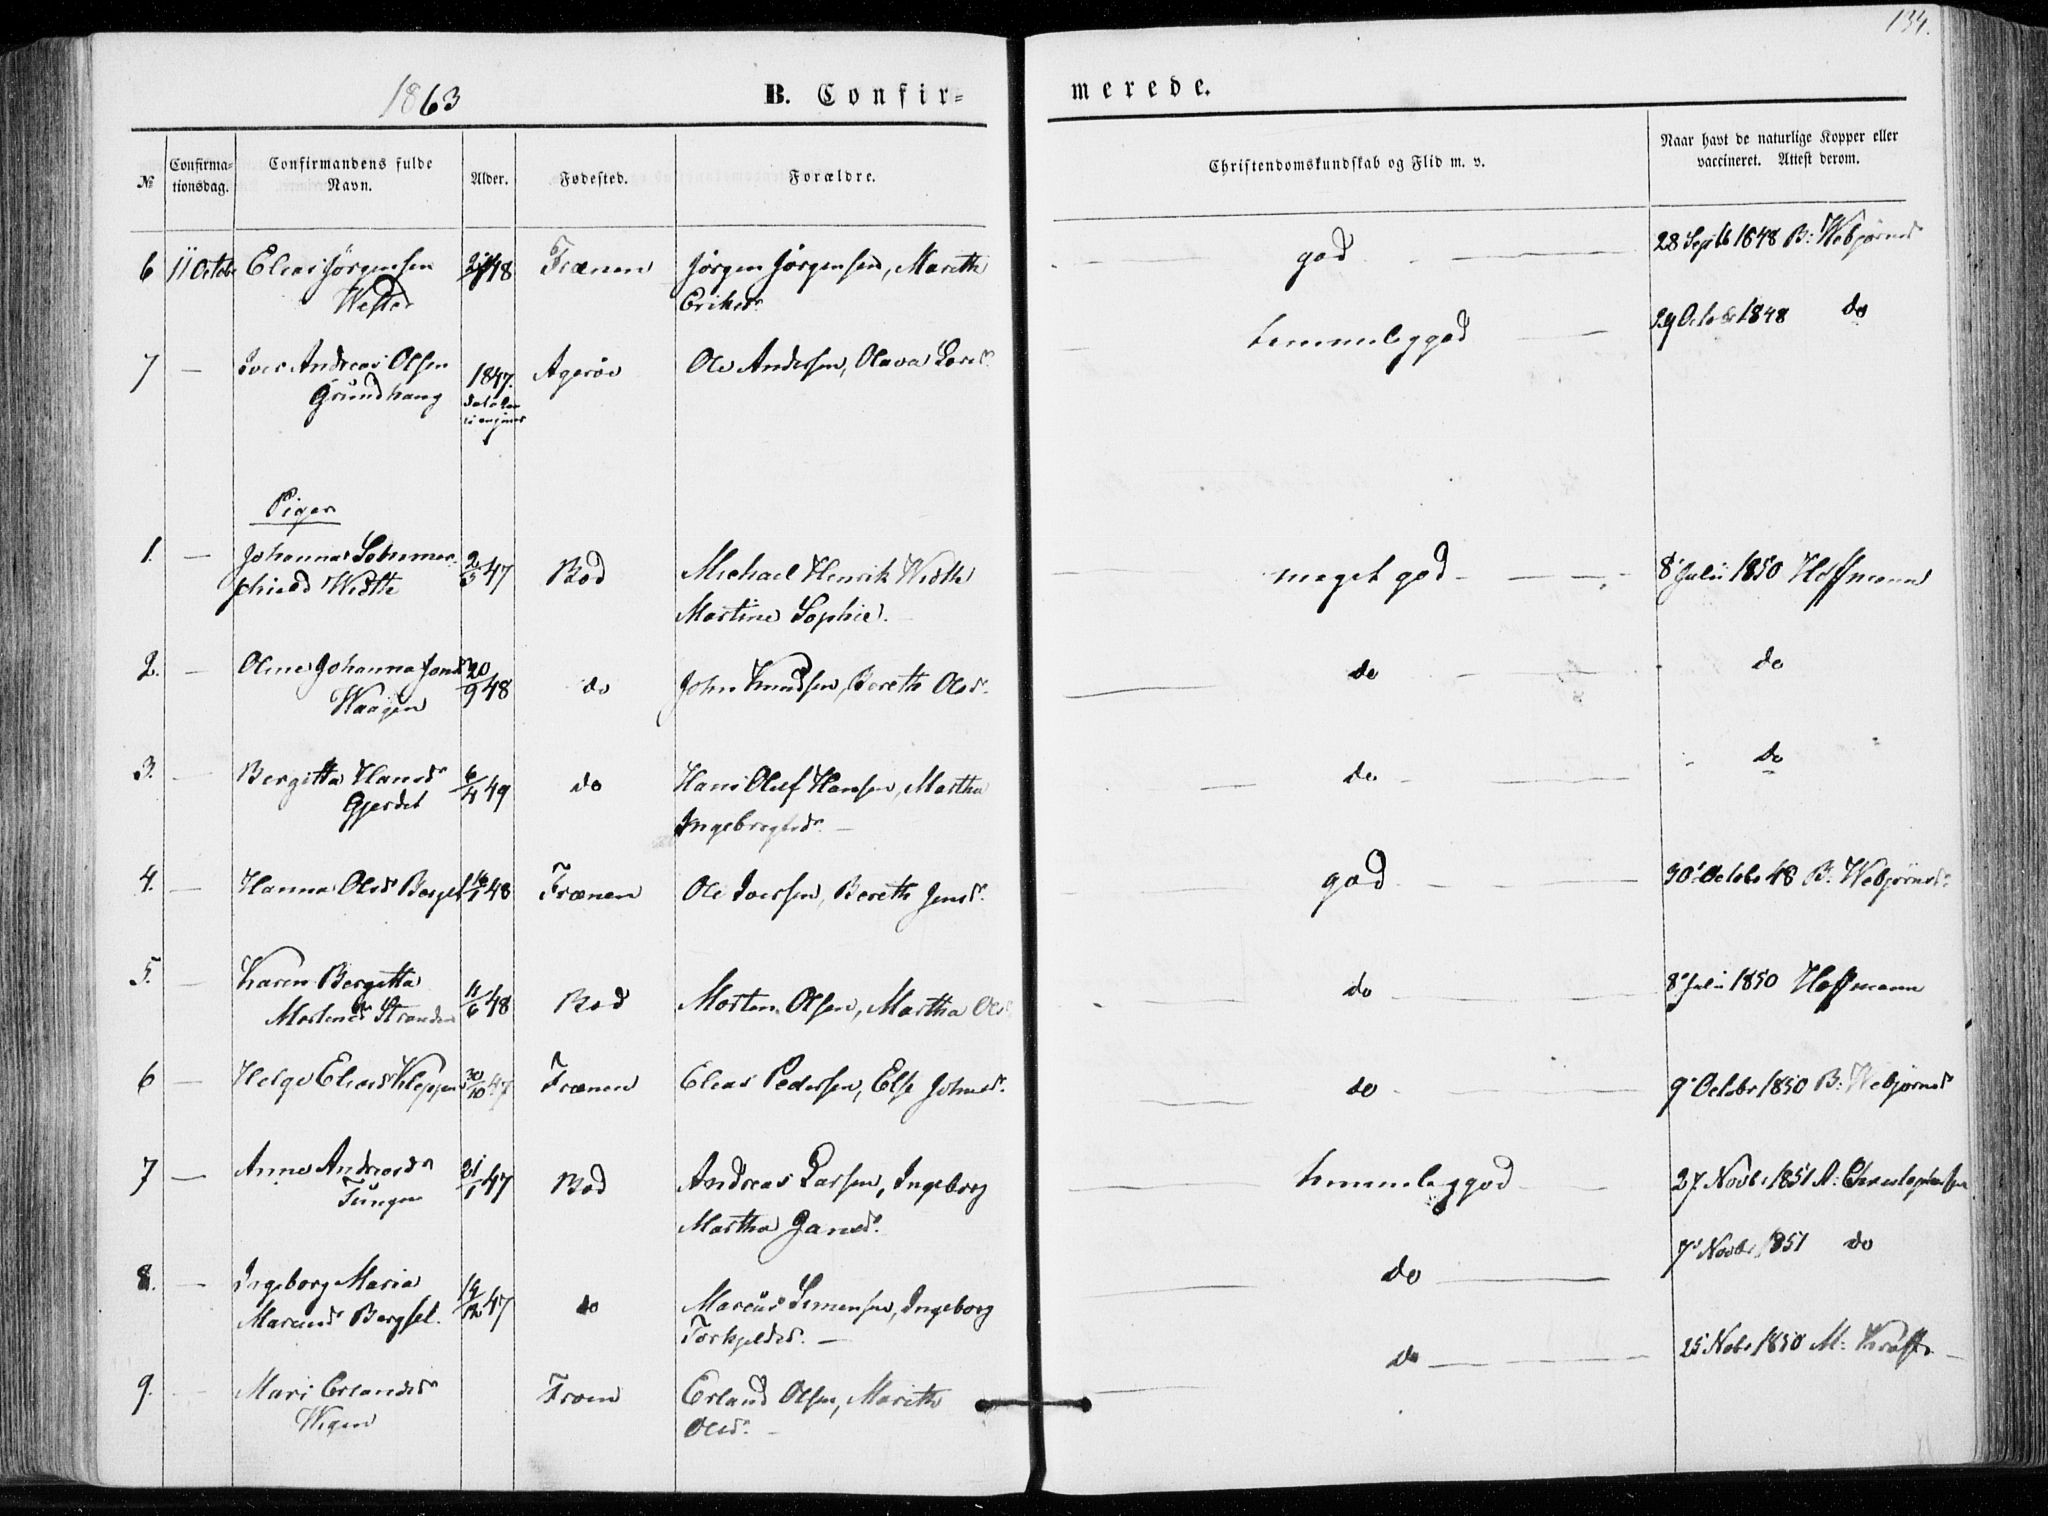 134.
1863
B. Confir=
merede.
№
Confirma=
tionsdag.
Confirmandens fulde
Navn.
Alder.
Fødested.
Forældre.
Christendomskundskab og Flid m. v.
Naar havt de naturlige Kopper eller
vaccineret. Attest derom.
6 11 Octob Elias Jørgensen 48 Frænen Jørgen Jørgensen, Marith god 28 Septb 1848 B: Webjørnsd
Erikesd.
7 — Iver Andreas Olsen 1847. Agerøe Ole Andersen, Olava Larsd. temmelig god 29 Octob 1848 do
Grundhaug
Piger
1. — Johanna 2/3 47 Bod Michael Henrik Width meget god 8 Juli 1850 Hoffmann
Width Martine Sophie.
2. — Oline Johanna Jonsd 20/9 48 do John Knudsen, Bereth Olsd. do do
Waagen
3. — Bergitta Hansd 6/4 49 do Hans Oluf Hansen, Martha do do
Gjerdet Ingebregtsd. —
4. — Hanna Olsd Bergset 48 Frænen Ole Iversen, Bereth Jensd. god 30 Octobr 48 B. Webjørnsd.
5. — Karen Bergitta 11/6 48 Bod Morten Olsen, Martha Olsd do 8 Juli 1850 Hoffmann
6 — Helge Eliasd 30/10 47 Frænen Elias Pedersen, Else Johnsd. do 9 Octobr 1850 B: Webjørnsd
7 — Anne Andreasd 31/1 47 Bod Andreas Larsen, Ingeborg temmelig god 27 Novbr 1851 A: Christophersen
Tungen Martha Jansd.
8. — Ingeborg Maria 47 do Marcus Simensen, Ingeborg do 7 Novbr 1851 do
Marcusd Bergset. Torkjeldsd. —
9. — Mari Erlandsd Fræn Erland Olsen, Marith do 25 Nobr 1850 M: Krafft
Olsd. —